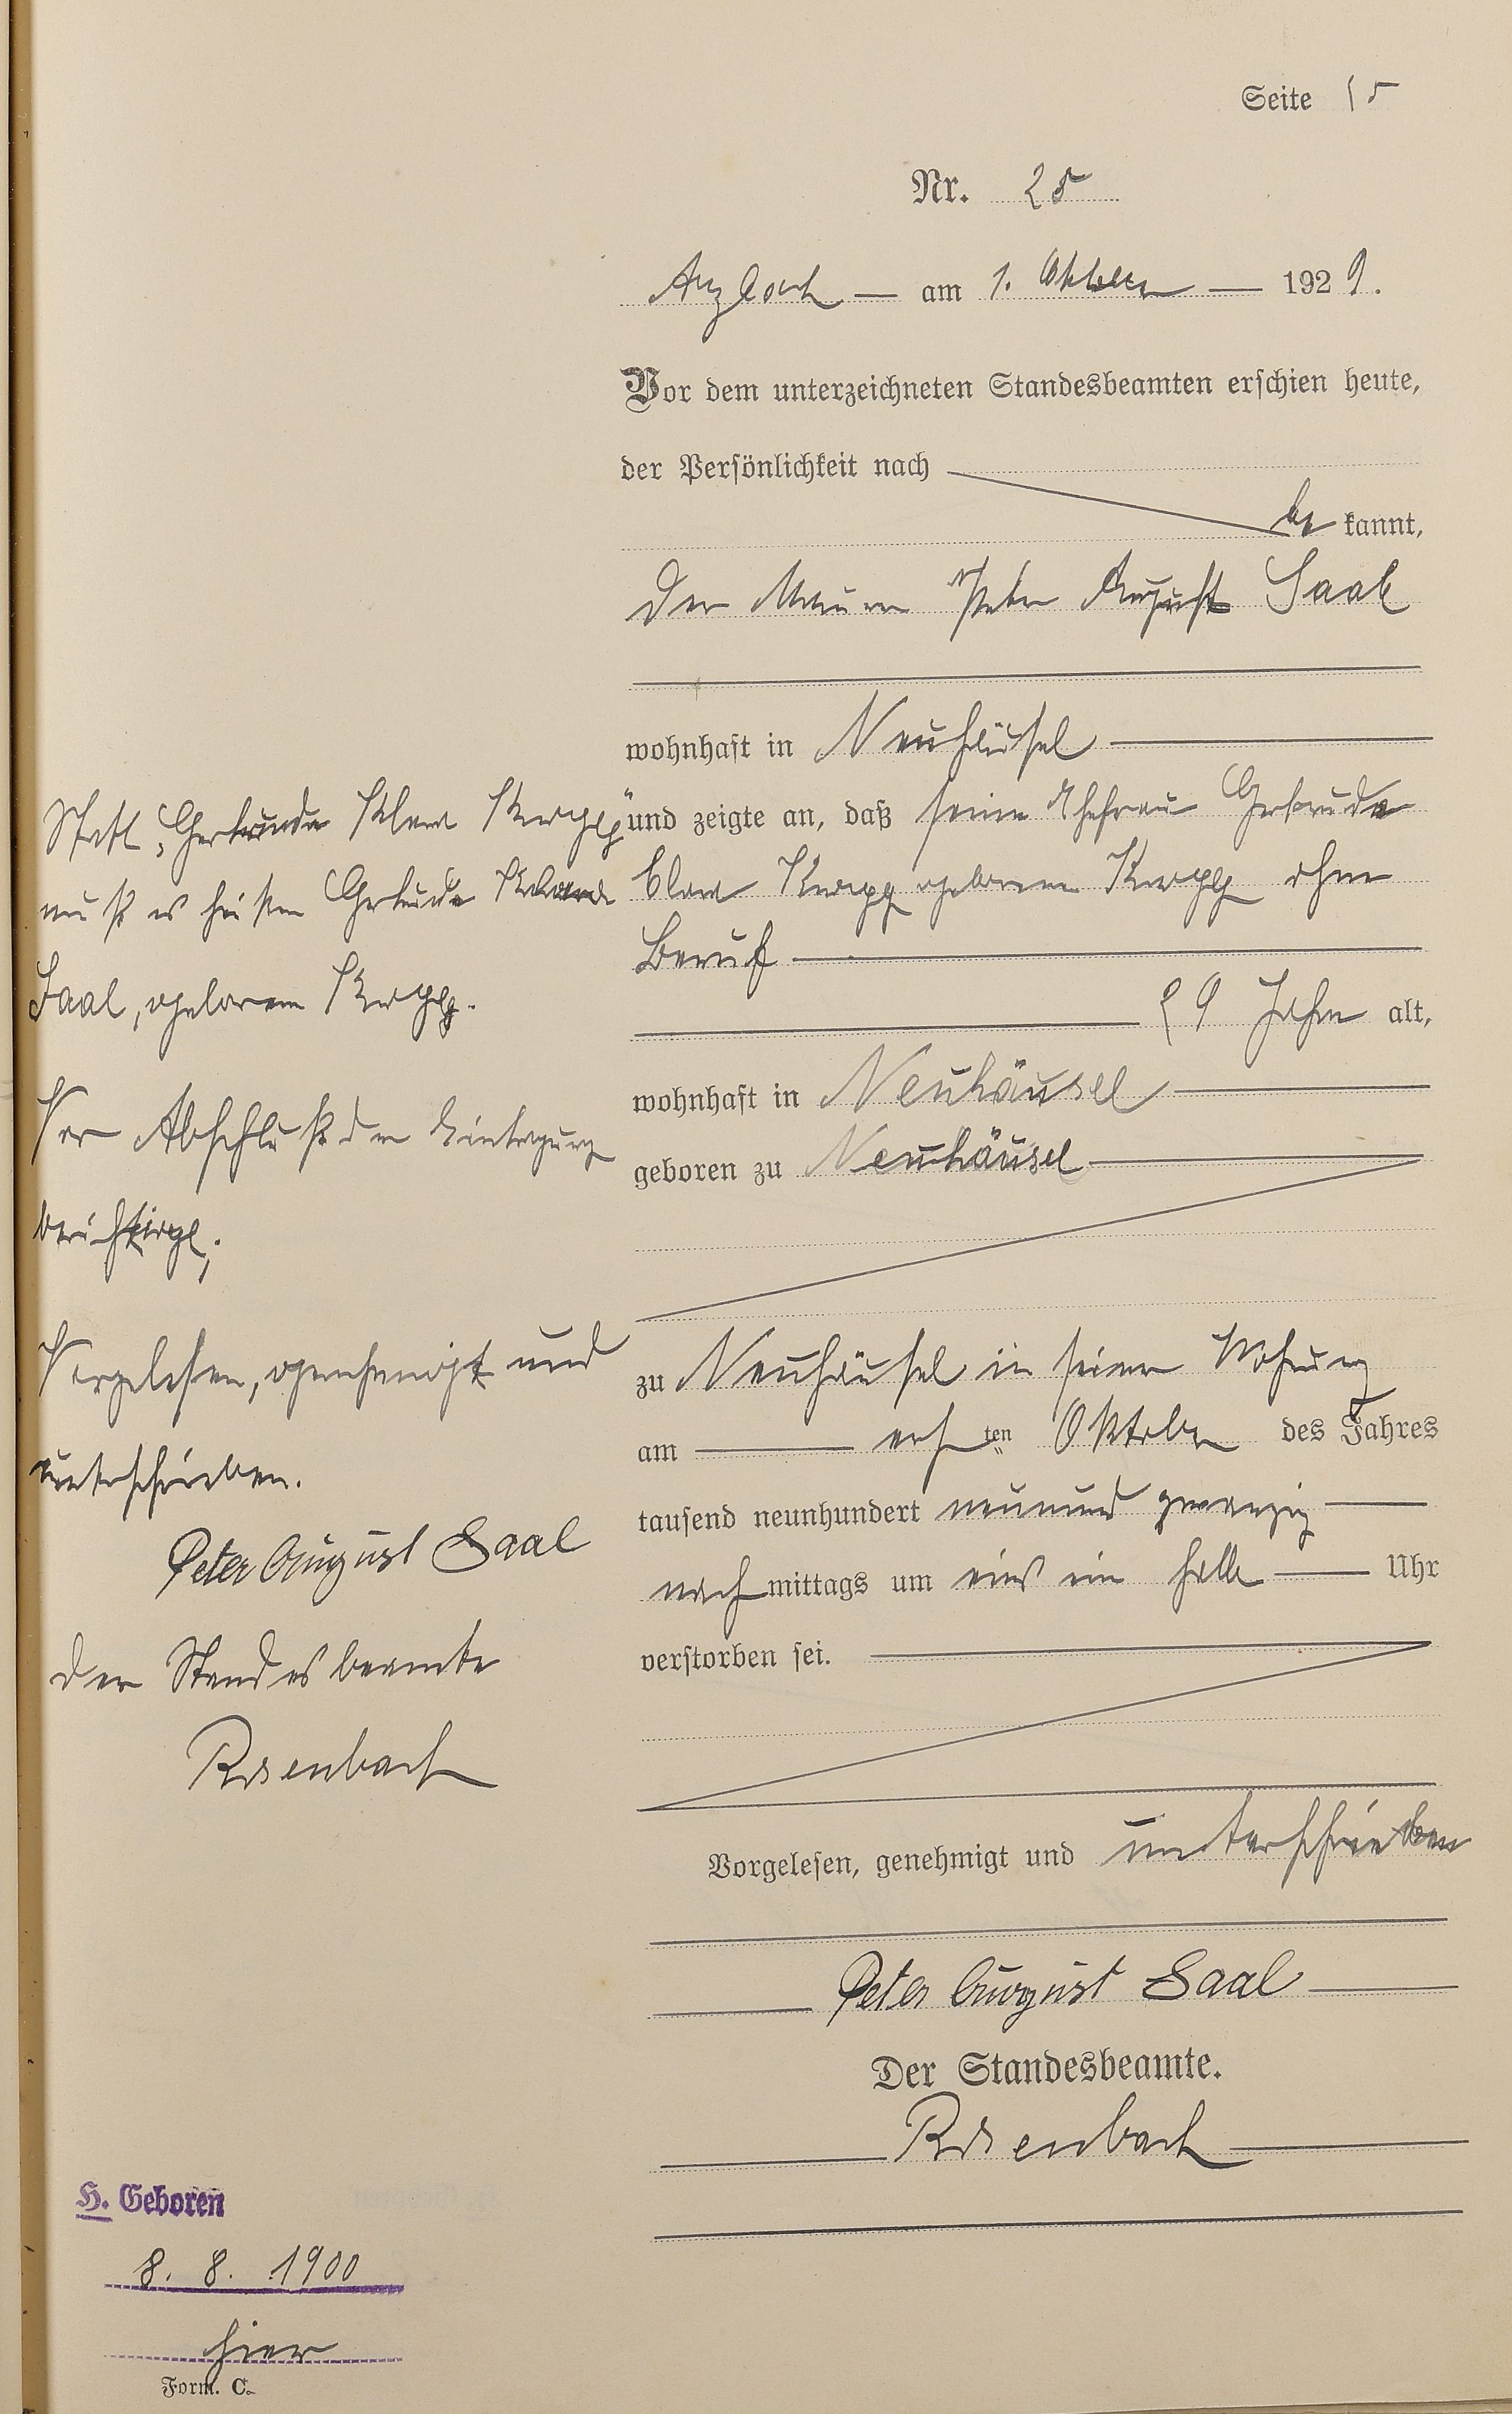 Seite 15
Nr. 25
Arzbach — am 1. Oktober — 1929.
Vor dem unterzeichneten Standesbeamten erschien heute,
der Persönlichkeit nach
be kannt,
der Maurer Peter August Saal
wohnhaft in Neuhäusel
und zeigte an, daß seine Ehefrau Gertruda
Clara Knopp geborene Knopp ohne
Beruf
29 Jahre alt,
wohnhaft in Neuhäusel
geboren zu Neuhäusel
zu Neuhäusel in seiner Wohnung
am ersten Oktober des Jahres
tausend neunhundert neunundzwanzig
nachmittags um eins ein halb Uhr
verstorben sei.
Vorgelesen, genehmigt und unterschrieben
Peter August Saal
Der Standesbeamte.
Rosenbach
Statt „Gertruda Klara Knopp"
muß es heißen Gertruda Klara
Saal, geborene Knopp.
Vor Abschluß der Eintragung
berichtigt;
Vorgelesen, genehmigt und
unterschrieben.
Peter August Saal
Der Standesbeamte
Rosenbach
H. Geboren
8. 8. 1900
hier
Form. C.